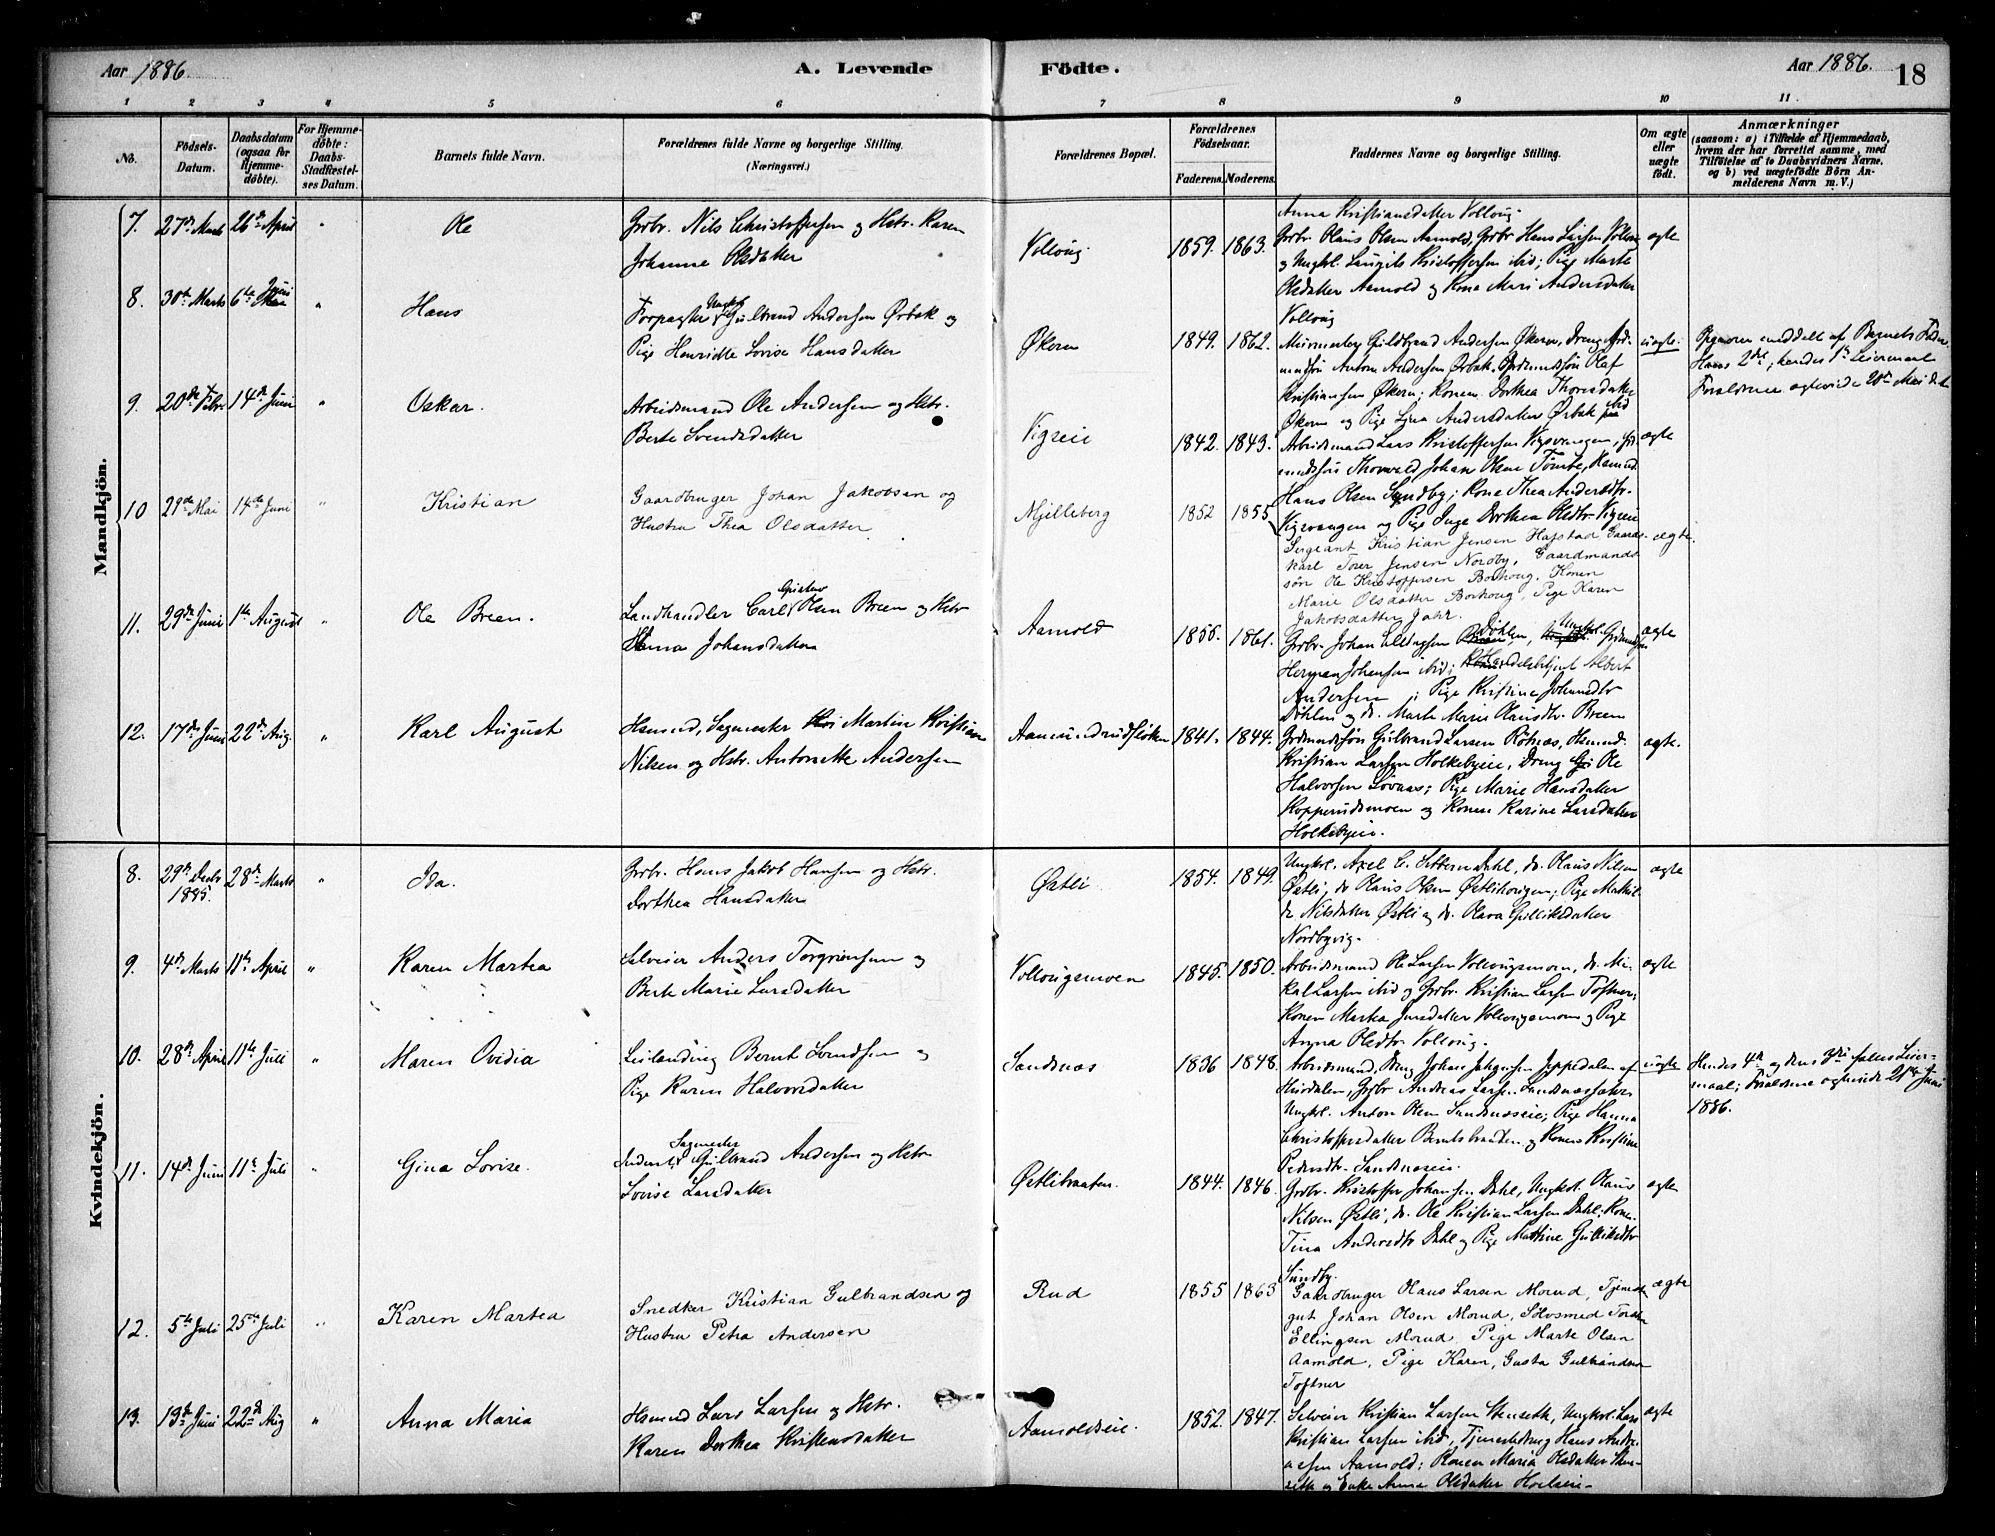 Aar 1886.
A. Levende
Födte.
Aar 1886.
18
1 2 3 4 5 6 7 8 9 10 11.
No.
Födsels-
Datum.
Daabsdatum
(ogsaa for
Hjemme-
döbte).
For Hjemme-
döbte:
Daabs-
Stadfæstel-
ses Datum.
Barnets fulde Navn.
Forældrenes fulde Navne og borgerlige Stilling.
(Næringsvei.)
Forældrenes Bopæl.
Forældrenes
Födselsaar.
Faderens. Moderens.
Faddernes Navne og borgerlige Stilling.
Om ægte
eller
uægte
födt.
Anmærkninger
(saasom: a) i Tilfælde af Hjemmedaab,
hvem der har forrettet samme, med
Tilföielse af to Daabsvidners Navne.
og b) ved uægtefödte Börn An-
melderens Navn m. V.)
Mandkjön.
7. 27de Marts 26de April " Ole
Grdbr. Nils Christoffersen og Hstr. Karen
Johanne Olsdatter
Volloug 1859. 1863.
Anna Kristiansdatter Volloug.
Grdbr. Olaus Olsen Aamold, Grdbr Hans Larsen Volloug
og Ungkl. Lauritz Kristoffersen ibid; Pige Marte
Olsdatter Aamold og Kone Mari Andersdatter
Volloug
ægte
8. 30te Marts 6te Juni " Hans
Forpagter Ungkl. Gulbrand Andersen Ørbæk og
Pige Henridte Lovise Hansdatter
Økern 1849. 1862.
Murmester Guldbrand Andersen Økern, Dreng
Anton Andersen Ørbæk, Grdmandssøn Olaf
Kristiansen Økern; Konen Dorthea Thorsdatter
Økern og Pige Lina Andersdatter Ørbæk ibid
uægte.
Opgaven meddelt af Barnets Fader.
Hans 2det, hendes 1ste Leiermaal
Forældrene ægteviede 20de Mai d.A.
9. 20de Febr. 14de Juni " Oskar.
Arbeidsmand Ole Andersen og Hstr.
Berte Svendsdatter
Vigseie 1842. 1843.
Arbeidsmand Lars Kristoffersen Vigsvangen,
Thorvald Johan Olsen Tømte,
Hans Olsen Sundby; Kone Thea Andersdtr.
Vigsvangen og Pige Inge Dorthea Olsdtr. Vigseie
ægte
10 29de Mai 14de Juni " Kristian
Gaardbruger Johan Jakobsen og
Hustru Thea Olsdatter
Mjelleberg 1852 1855
Sergeant Kristian Jensen Hafstad Gaard-
karl Torer Jensen Nordby, Gaardmands-
søn Ole Kristoffersen Borhoug, Konen
Marie Olsdatter Borhoug, Pige Karen
Jakobsdatter Jahr.
ægte.
11. 29de Juni 1ste August " Ole Breen.
Landhandler Carl Olsen Breen og Hstr
Anna Johansdatter
Aamold 1856. 1861.
Grdbr. Johan Ellingsen Döhlen, Ungkl.
Herman Johansen ibid; Handelsbetjent Albert
Andersen; Pige Kristine Johansdtr
Döhlen og do. Marte Marie Olausdtr. Breen
ægte
12. 17de Juni 22de Aug. " Karl August
Husmd, Sagmester Martin Kristian
Nilsen og Hstr. Antonette Andersen
Aamundrudsløkken 1841. 1844.
Grdmandssøn Gulbrand Larsen Rötnæs, Husmd.
Kristian Larsen Holkebyeie, Dreng Ole
Halvorsen Løvnæs; Pige Marie Hansdatter
Kopperudsmoen og Konen Karine Larsdatter
Holkebyeie.
ægte.
Kvindekjön.
8. 29de Decbr 1885. 28de Marts " Ida.
Grdbr. Hans Jakob Hansen og Hstr.
Dorthea Hansdatter
Østli 1854. 1849.
Ungkl. Axel C. Sibbern Dahl, do. Olaus Nilsen
Østli, do Olaus Olsen Østlihougen; Pige Mathil-
de Nilsdatter Østli og do. Olava Gulliksdatter
Nordbyvig.
ægte
9. 4de Marts 11te April " Karen Martea
Selveier Anders Torgrimsen og
Berte Marie Larsdatter
Vollougsmoen 1845. 1850.
Arbeidsmand Ole Larsen Vollougsmoen, do. Mi-
kal Larsen ibid og Grdbr. Kristian Larsen Toftner;
Konen Martea Jensdatter Vollougsmoen og Pige
Anna Olsdtr Volloug.
ægte
10. 28de April 11te Juli " Maren Ovidia
Leilending Bernt Svendsen og
Pige Karen Halvorsdatter
Sandsnæs 1836 1848.
Arbeidsmand, Dreng Johan Jeppedalen af
Hurdalen, Grdbr Andreas Larsen
Ungkl. Anton Olsen Sandsnæseie; Pige Hanna
Christoffersdatter Berntsbraaten og Konen Kristine
Pedersdtr. Sandsnæseie.
uægte
Hendes 4de og hans 3die fælles Leier-
maal; Forældrene ægteviede 21de Juni
1886.
11. 14de Juni 11te Juli " Gina Lovise.
Sagmester Gulbrand Andersen og Hstr
Lovise Larsdatter
Østlibraaten. 1844. 1846.
Grdbr. Kristoffer Johansen Dahl, Ungkl. Olaus
Nilsen Østli, do. Ole Kristian Larsen Dahl; Kone
Tina Andersdtr Dahl og Pige Mathine Gulliksdtr
Sundby.
ægte
12. 5te Juli 25de Juli " Karen Martea
Snedker Kristian Gulbrandsen og
Hustru Petra Andersen
Rud 1855 1863
Gaardbruger Olaus Larsen Morud, Tjeneste-
gut Johan Olsen Morud, Sölvsmed
Ellingsen Morud, Pige Marte Olsen
Aamold, Pige Karen, Gusta Gulbrandsen
Toftner
ægte
13. 13de Juni 22de Aug " Anna Maria
Husmd Lars Larsen og Hstr.
Karen Dorthea Kristensdatter
Aamoldseie. 1852. 1847.
Selveier Kristian Larsen Stenseth, Ungkl. Lars
Kristian Larsen ibid, Tjenestedreng Hans Andre-
asen Aamold; Konen Maria Olsdatter Sten-
seth og Enke Anne Olsdatter Hoelseie.
ægte